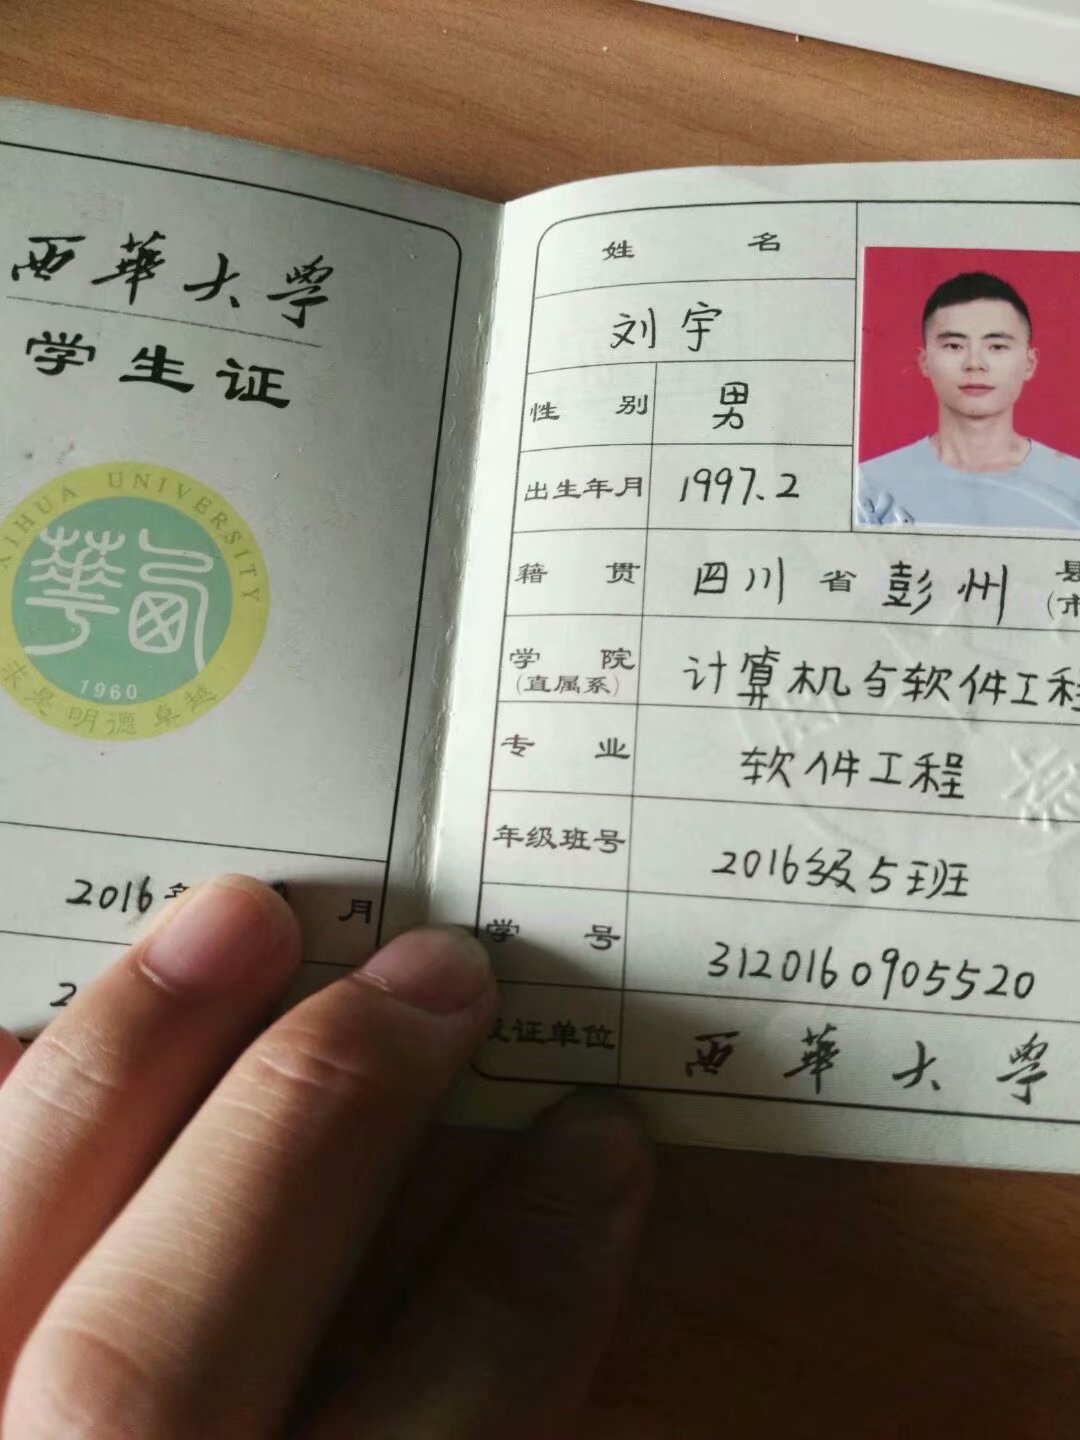 西華大學
学生证
XIHUA UNIVERSITY
華西
1960
求是 明德 卓越
2016年 月
2
姓名
刘宇
性别 男
出生年月 1997.2
籍贯 四川省彭州县
(市
学院 计算机与软件工程
(直属系)
专业 软件工程
年级班号 2016级5班
学号 3120160905520
发证单位 西華大學